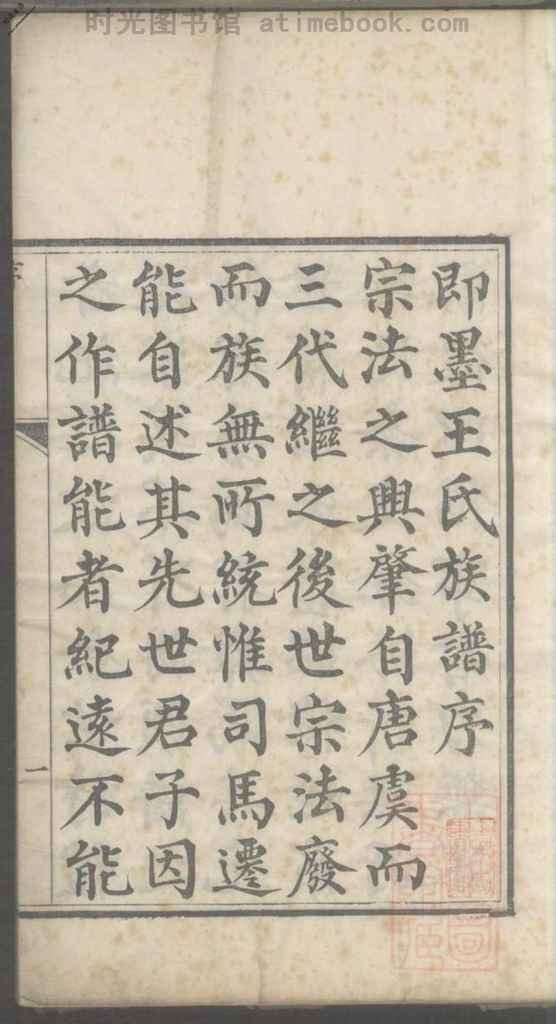 时光图书馆 atimebook.com
即墨王氏族譜序
宗法之興肇自唐虞而
三代繼之後世宗法廢
而族無所統惟司馬遷
能自述其先世君子因
之作譜能者紀遠不能
序
一